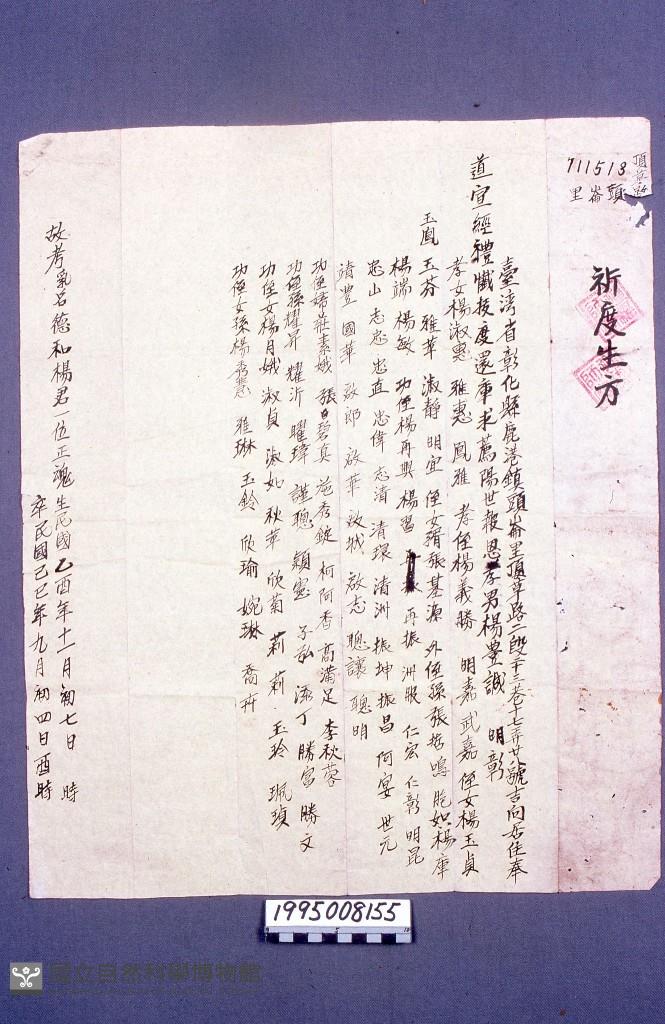 頂草路
711513
頭崙里
祈度生方
臺湾省彰化縣鹿港鎮頭崙里頂草路二段十三巷十七弄廿八號吉向居住奉
道宣經禮懺拔度還庫求薦陽世報恩孝男楊豊誠 明彰
孝女楊淑惠 雅惠 鳳雅 孝侄楊義勝 明嘉 武嘉 侄女楊玉貞
玉鳳 玉芬 雅苹 淑静 明宜 侄女壻張基源 外侄孫張哲鳴 胞如楊
楊端 楊敏 功侄楊再興 再振 洲服 仁宏 仁彰 明昆
忠山 志忠 忠直 忠偉 志清 清環 清洲 振坤 振昌 何宴 世元
靖豊 國華 啟郎 啟華 啟城 啟志 聰讓 聰明
功侄媳莊素娥 張白碧真 施秀錠 柯阿香 高满足 李秋蓉
功侄孫耀昇 耀沂 曜瑋 謹聰 穎憲 子弘 添丁 勝富 勝文
功侄女楊月娥 淑貞 淑如 秋華 欣菊 莉莉 玉玲 珮瑱
功侄女孫楊秀慧 雅琳 玉鈴 欣瑜 婉琳 喬卉
故考乳名德和楊君一位正魂 生民國乙酉年十一月初七日 時
卒民國己巳年九月初四日酉時
1995008155
國立自然科學博物館